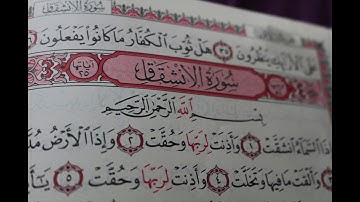 سُورَةُ الِانْشِقَاقِ
عَلَى الْأَرَائِكِ يَنْظُرُونَ ﴿٣٥﴾ هَلْ ثُوِّبَ الْكُفَّارُ مَا كَانُوا يَفْعَلُونَ ﴿٣٦﴾
سُورَةُ الِانْشِقَاقِ آيَاتُهَا ٢٥
بِسْمِ اللَّهِ الرَّحْمَنِ الرَّحِيمِ
السَّمَاءُ انْشَقَّتْ ﴿١﴾ وَأَذِنَتْ لِرَبِّهَا وَحُقَّتْ ﴿٢﴾ وَإِذَا الْأَرْضُ
وَأَلْقَتْ مَا فِيهَا وَتَخَلَّتْ ﴿٤﴾ وَأَذِنَتْ لِرَبِّهَا وَحُقَّتْ ﴿٥﴾